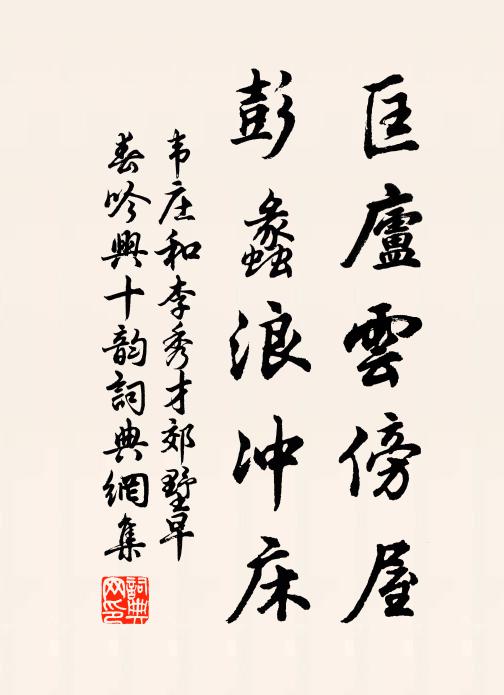 匡廬雲傍屋
彭蠡浪冲床
韦庄和李秀才郊墅早
春吟興十韵詞典網集
詞典网印